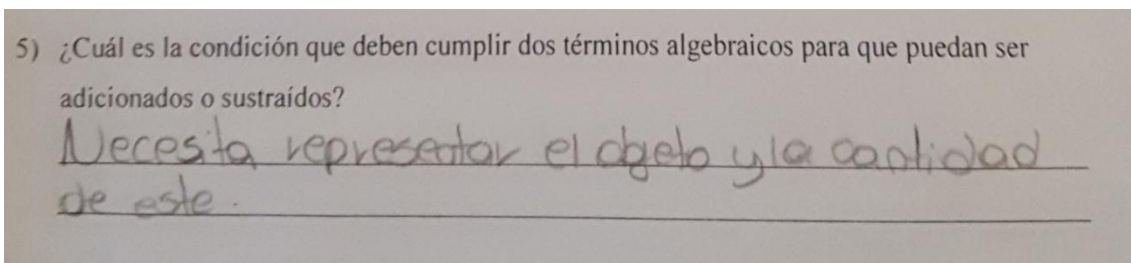 5) ¿Cuál es la condición que deben cumplir dos términos algebraicos para que puedan ser
adicionados o sustraídos?
Necesita representar el objeto y la cantidad
de este.